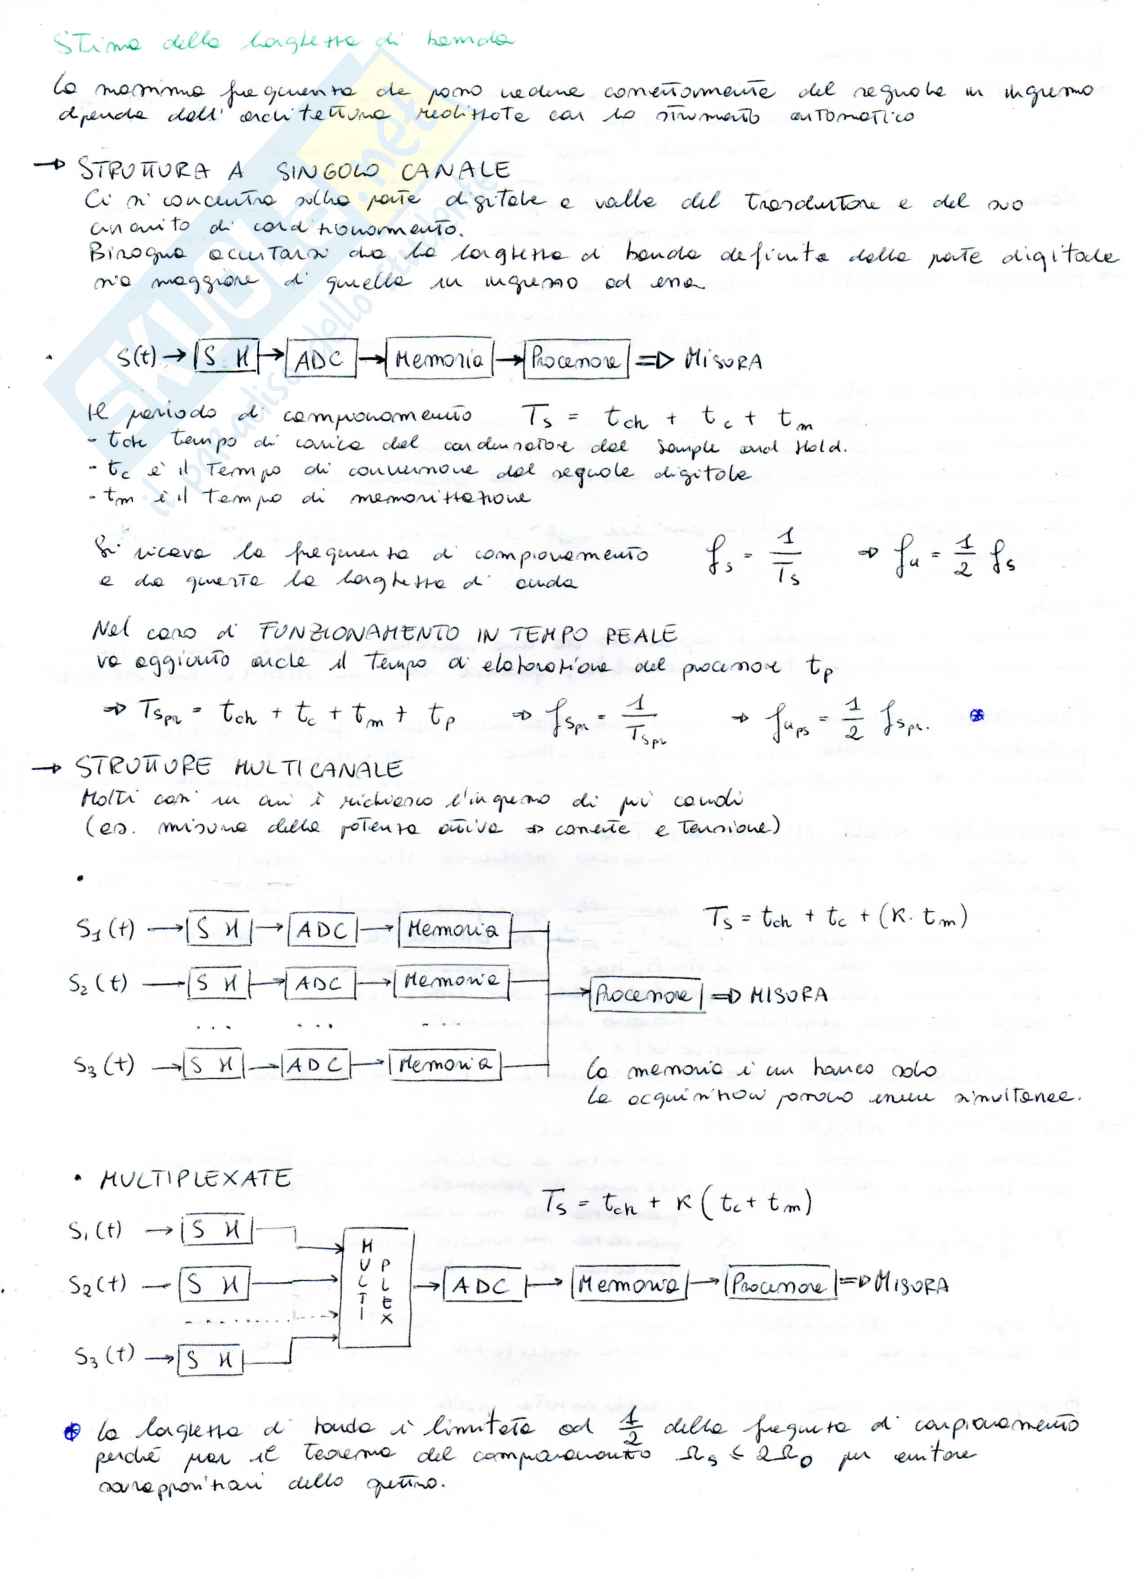 Stima della larghezza di banda
La massima frequenza che posso vedere correttamente del segnale in ingresso
dipende dall'architettura realizzata con lo strumento automatico
→ STRUTTURA A SINGOLO CANALE
Ci si concentra sulla parte digitale a valle del trasduttore e del suo
circuito di condizionamento.
Bisogna accertarsi che la larghezza di banda definita dalla parte digitale
sia maggiore di quella in ingresso ad essa
• S(t) → S H → ADC → Memoria → Processore ⇒ MISURA
Il periodo di campionamento Ts = tch + tc + tm
- tch tempo di carica del condensatore del Sample and Hold.
- tc è il tempo di conversione del segnale digitale
- tm è il tempo di memorizzazione
Si ricava la frequenza di campionamento fs = 1/Ts ⇒ fu = 1/2 fs
e da questa la larghezza di banda
Nel caso di FUNZIONAMENTO IN TEMPO REALE
va aggiunto anche il tempo di elaborazione del processore tp
⇒ Tspr = tch + tc + tm + tp ⇒ fspr = 1/Tspr ⇒ fups = 1/2 fspr. ⊛
→ STRUTTURE MULTICANALE
Molti casi in cui è richiesto l'ingresso di più canali
(es. misura della potenza attiva ⇒ corrente e tensione)
•
S1(t) → S H → ADC → Memoria
Ts = tch + tc + (K · tm)
S2(t) → S H → ADC → Memoria
Processore ⇒ MISURA
... ... ...
S3(t) → S H → ADC → Memoria
La memoria è un banco solo
Le acquisizioni possono essere simultanee.
• MULTIPLEXATE
Ts = tch + K (tc + tm)
S1(t) → S H
MULTI
PLEX
S2(t) → S H → ADC → Memoria → Processore ⇒ MISURA
S3(t) → S H
⊛ La larghezza di banda è limitata ad 1/2 della frequenza di campionamento
perché per il teorema del campionamento Ωs ≤ 2Ω0 per evitare
sovrapposizioni dello spettro.
SKUOLA.net
il paradiso dello studente